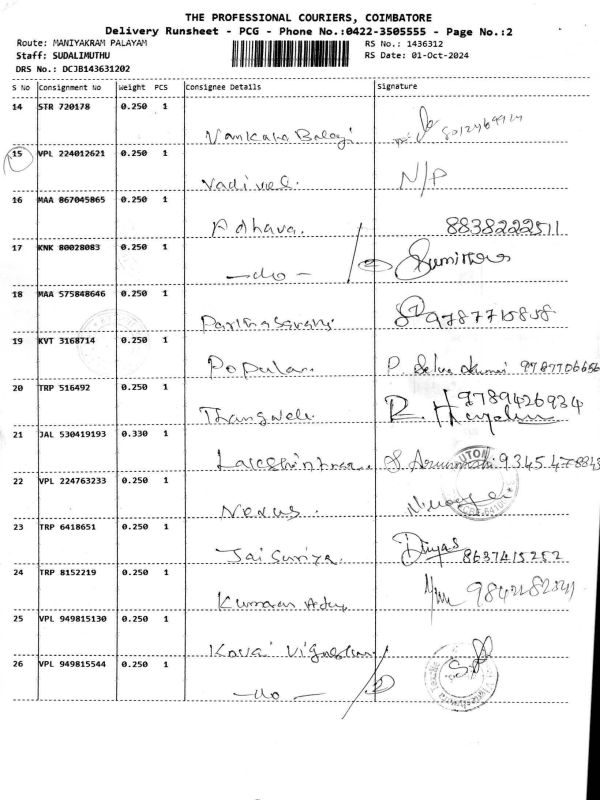 THE PROFESSIONAL COURIERS, COIMBATORE
Delivery Runsheet - PCG - Phone No.:0422-3505555 - Page No.:2
Route: MANIYAKRAM PALAYAM RS No.: 1436312
Staff: SUDALIMUTHU RS Date: 01-Oct-2024
DRS No.: DCJB143631202
S No Consignment No Weight PCS Consignee Details Signature
14 STR 720178 0.250 1
15 VPL 224012621 0.250 1
Vadivel. N/P
16 MAA 867045865 0.250 1
Adhava. 8838222511
17 KNK 80028083 0.250 1
-do-
18 MAA 575848646 0.250 1
9787715858
19 KVT 3168714 0.250 1
Popular. 9787706656
20 TRP 516492 0.250 1
9789426934
Thangvel. R.
21 JAL 530419193 0.330 1
22 VPL 224763233 0.250 1
Nexus.
23 TRP 6418651 0.250 1
Jai Suriya. Divyas 8637415252
24 TRP 8152219 0.250 1
Kumaran
25 VPL 949815130 0.250 1
Kovai Vignesh
26 VPL 949815544 0.250 1
-do-